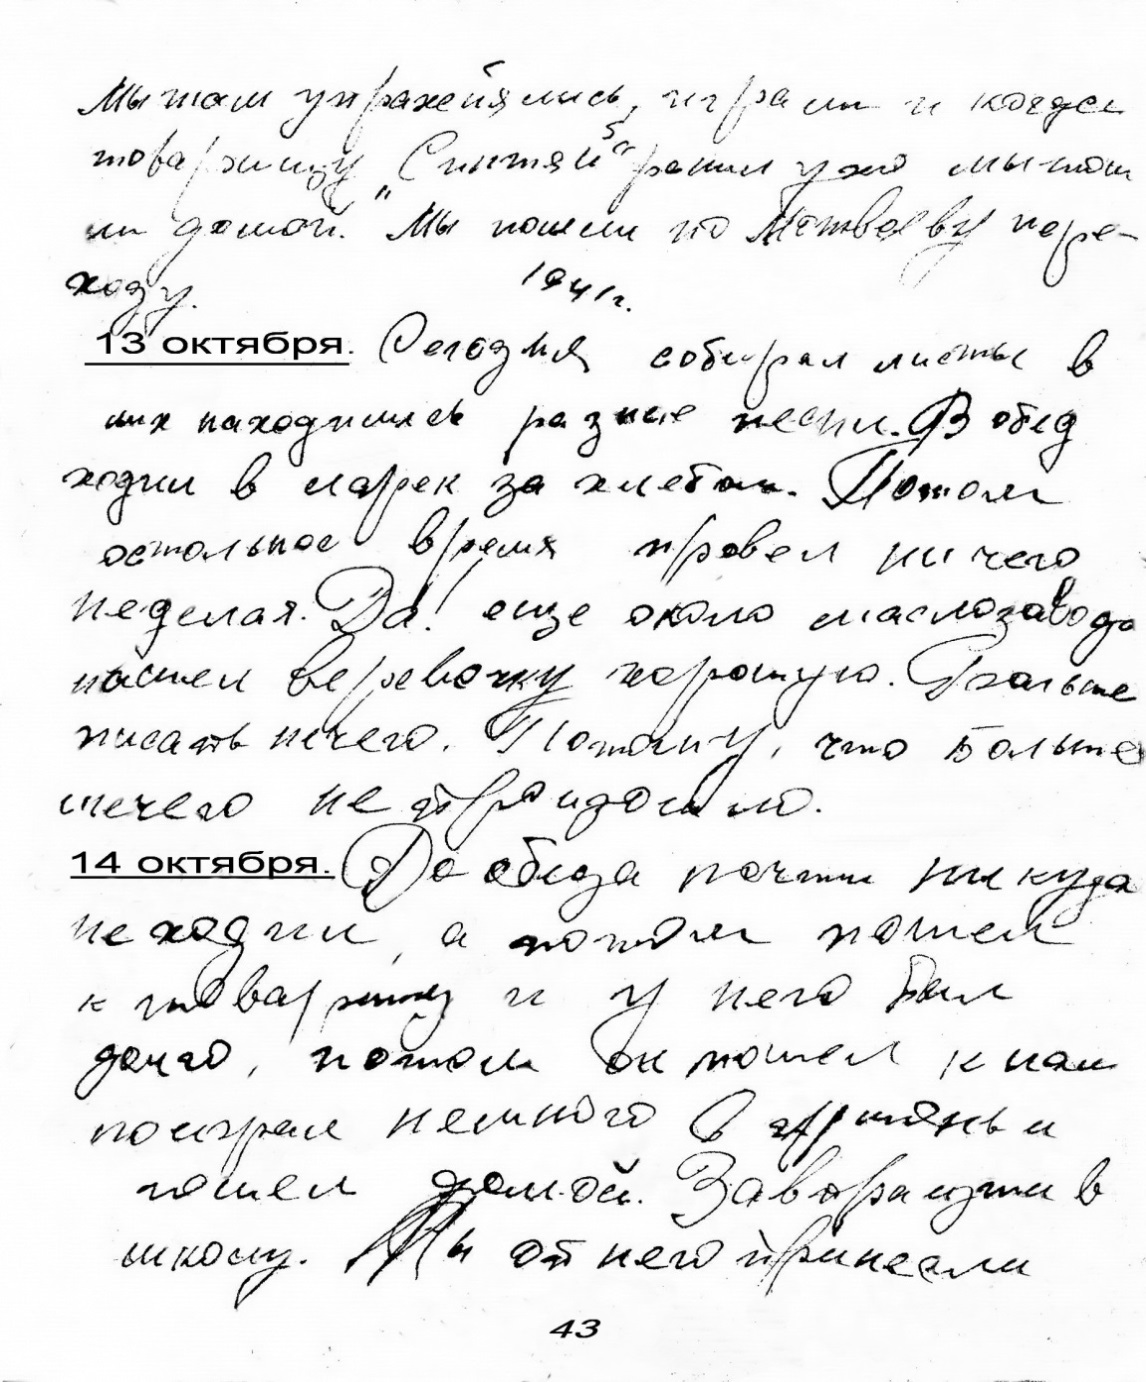 Мы там упражнялись, играли и когда
товарищу "Синтяй" ранил ухо мы пош
ли домой. Мы пошли по Матвееву пере-
ходу. 1941г.
13 октября. Сегодня собирал листы в
них находились разные песни. В обед
ходил в ларек за хлебом. Потом
остальное время провел ничего
неделая. Да! еще около маслозавода
нашел веревочку хорошую. Больше
писать нечего. Потому, что больше
нечего не
14 октября. До обеда почти никуда
не ходил, а потом пошел
к товарищу и у него был
долго, потом он пошел к нам
поиграл немного в и
пошел домой. Завтра идти в
школу. Мы от него принесли
43